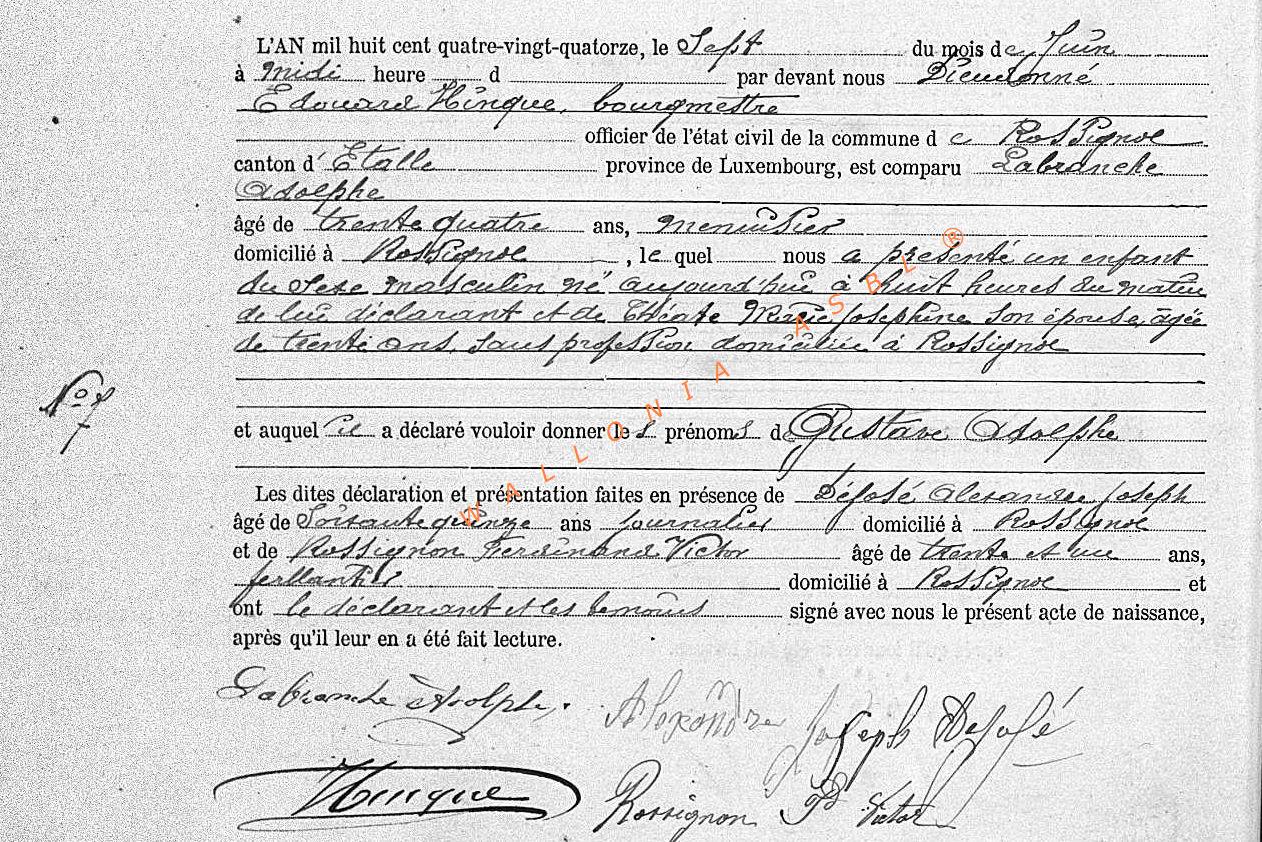 L'AN mil huit cent quatre-vingt-quatorze, le Sept du mois de Juin
à midi heure d par devant nous Dieudonné
Edouard Hinque, bourgmestre
officier de l'état civil de la commune de Rossignol
canton d'Etalle province de Luxembourg, est comparu Labranche
Adolphe
âgé de trente quatre ans, menuisier
domicilié à Rossignol, le quel nous a présenté un enfant
du sexe masculin né aujourd'hui à huit heures du matin
de lui déclarant et de Marie Josephine son épouse, agée
de trente ans, sans profession domiciliée à Rossignol
No 7
et auquel il a déclaré vouloir donner les prénoms de Gustave Adolphe
Les dites déclaration et présentation faites en présence de Déjosé Alexandre Joseph
âgé de Soixante quinze ans journalier domicilié à Rossignol
et de Rossignon Ferdinand Victor âgé de trente et un ans,
ferblantier domicilié à Rossignol et
ont le déclarant et les témoins signé avec nous le présent acte de naissance,
après qu'il leur en a été fait lecture.
Labranche Adolphe.
Alexandre Joseph Dejosé
Hinque
Rossignon Fd Victor
WALLONIA ASBL ®